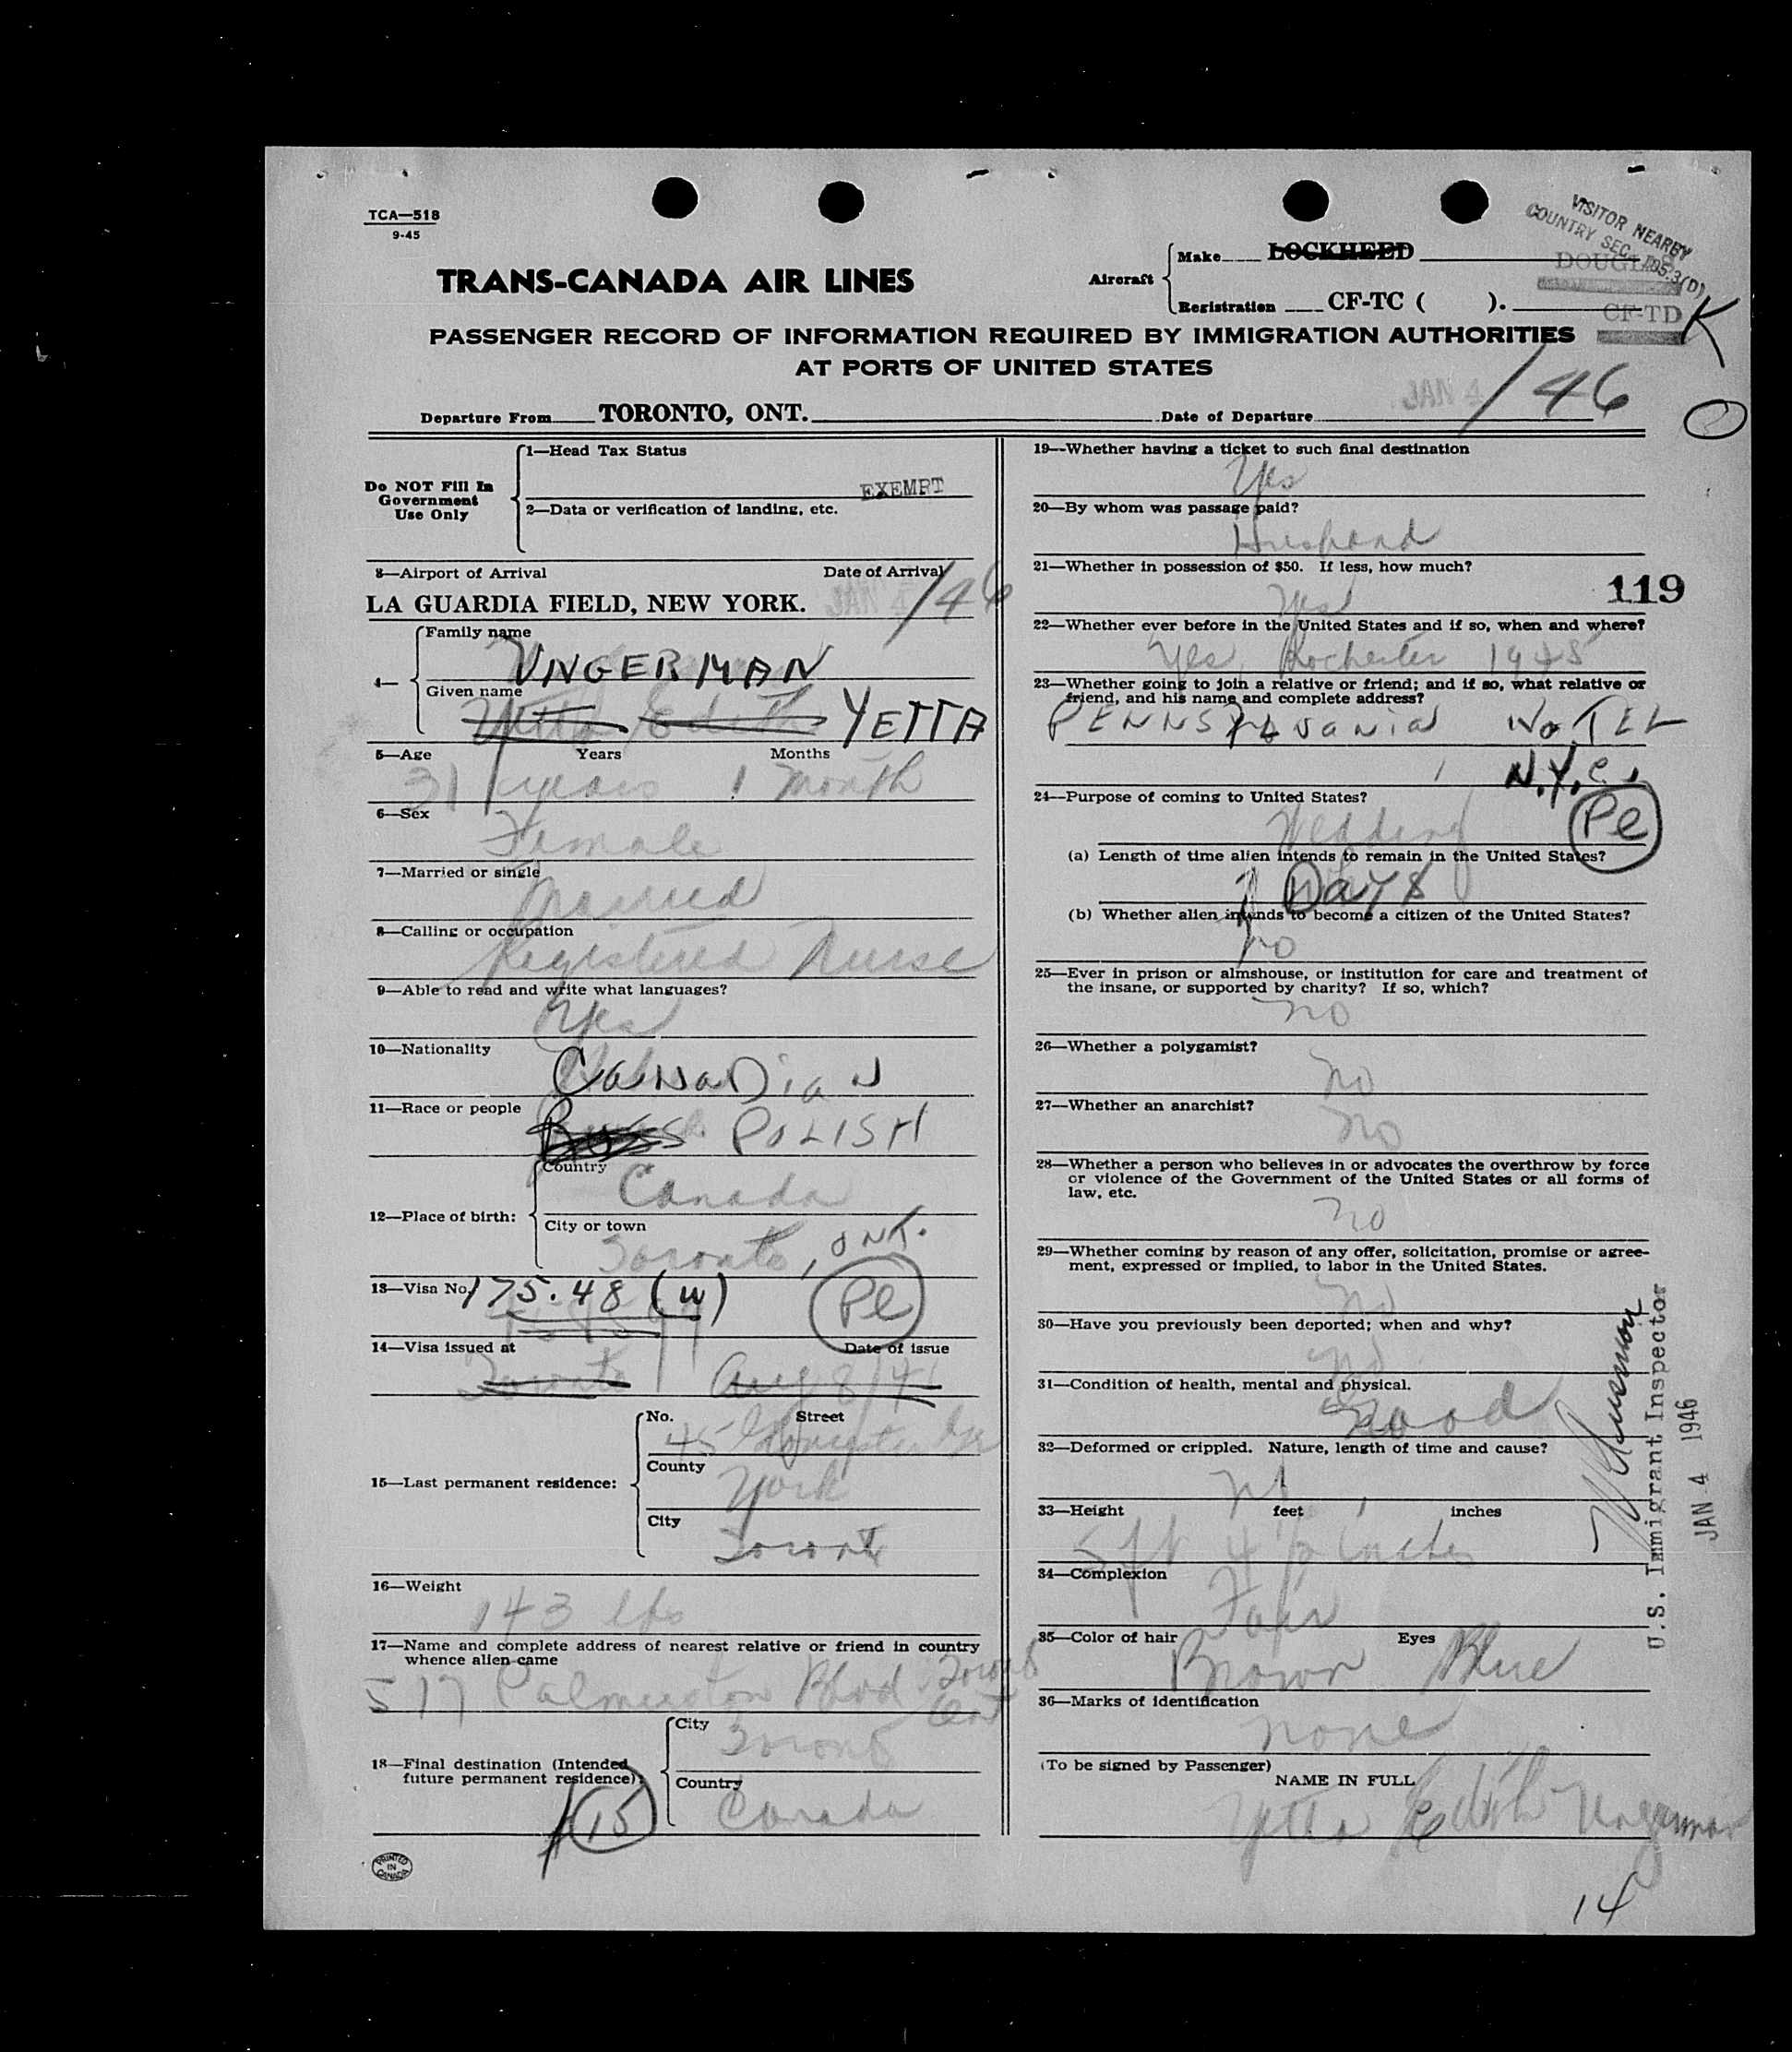 TCA—518
9-45
VISITOR NEARBY
COUNTRY SEC. 105.3(D)
TRANS-CANADA AIR LINES
Aircraft
Make LOCKHEED
DOUGLAS
Registration CF-TC ( ).
CF-TD K
PASSENGER RECORD OF INFORMATION REQUIRED BY IMMIGRATION AUTHORITIES
AT PORTS OF UNITED STATES
Departure From TORONTO, ONT. Date of Departure JAN 4/46
Do NOT Fill In
Government
Use Only
1—Head Tax Status
EXEMPT
2—Data or verification of landing, etc.
3—Airport of Arrival Date of Arrival
LA GUARDIA FIELD, NEW YORK. JAN 4/46
4—
Family name
UNGERMAN
Given name
Yetta Edith YETTA
5—Age Years Months
31 years 1 month
6—Sex
Female
7—Married or single
Married
8—Calling or occupation
Registered Nurse
9—Able to read and write what languages?
Yes
10—Nationality
CANADIAN
11—Race or people
POLISH
12—Place of birth:
Country
Canada
City or town
Toronto, ONT.
13—Visa No.
175.48 (w) Pl
14—Visa issued at Date of issue
Toronto Aug 8/41
15—Last permanent residence:
No. Street
45
County
York
City
Toronto
16—Weight
143 lbs
17—Name and complete address of nearest relative or friend in country
whence alien came
517 Palmerston Blvd Toronto
Ont
18—Final destination (Intended
future permanent residence):
City
Toronto
Country
Canada
15
PRINTED
IN
CANADA
19—Whether having a ticket to such final destination
Yes
20—By whom was passage paid?
Husband
21—Whether in possession of $50. If less, how much?
Yes
119
22—Whether ever before in the United States and if so, when and where?
Yes, Rochester 1945
23—Whether going to join a relative or friend; and if so, what relative or
friend, and his name and complete address?
PENNSYLVANIA HOTEL
N.Y.C.
24—Purpose of coming to United States?
Wedding Pl
(a) Length of time alien intends to remain in the United States?
7 Days
(b) Whether alien intends to become a citizen of the United States?
no
25—Ever in prison or almshouse, or institution for care and treatment of
the insane, or supported by charity? If so, which?
no
26—Whether a polygamist?
no
27—Whether an anarchist?
no
28—Whether a person who believes in or advocates the overthrow by force
or violence of the Government of the United States or all forms of
law, etc.
no
29—Whether coming by reason of any offer, solicitation, promise or agree-
ment, expressed or implied, to labor in the United States.
no
30—Have you previously been deported; when and why?
no
31—Condition of health, mental and physical.
Good
32—Deformed or crippled. Nature, length of time and cause?
33—Height feet inches
5 ft 4½ inches
34—Complexion
Fair
35—Color of hair Eyes
Brown Blue
36—Marks of identification
none
(To be signed by Passenger)
NAME IN FULL
Yetta Edith Ungerman
U.S. Immigrant Inspector
JAN 4 1946
14